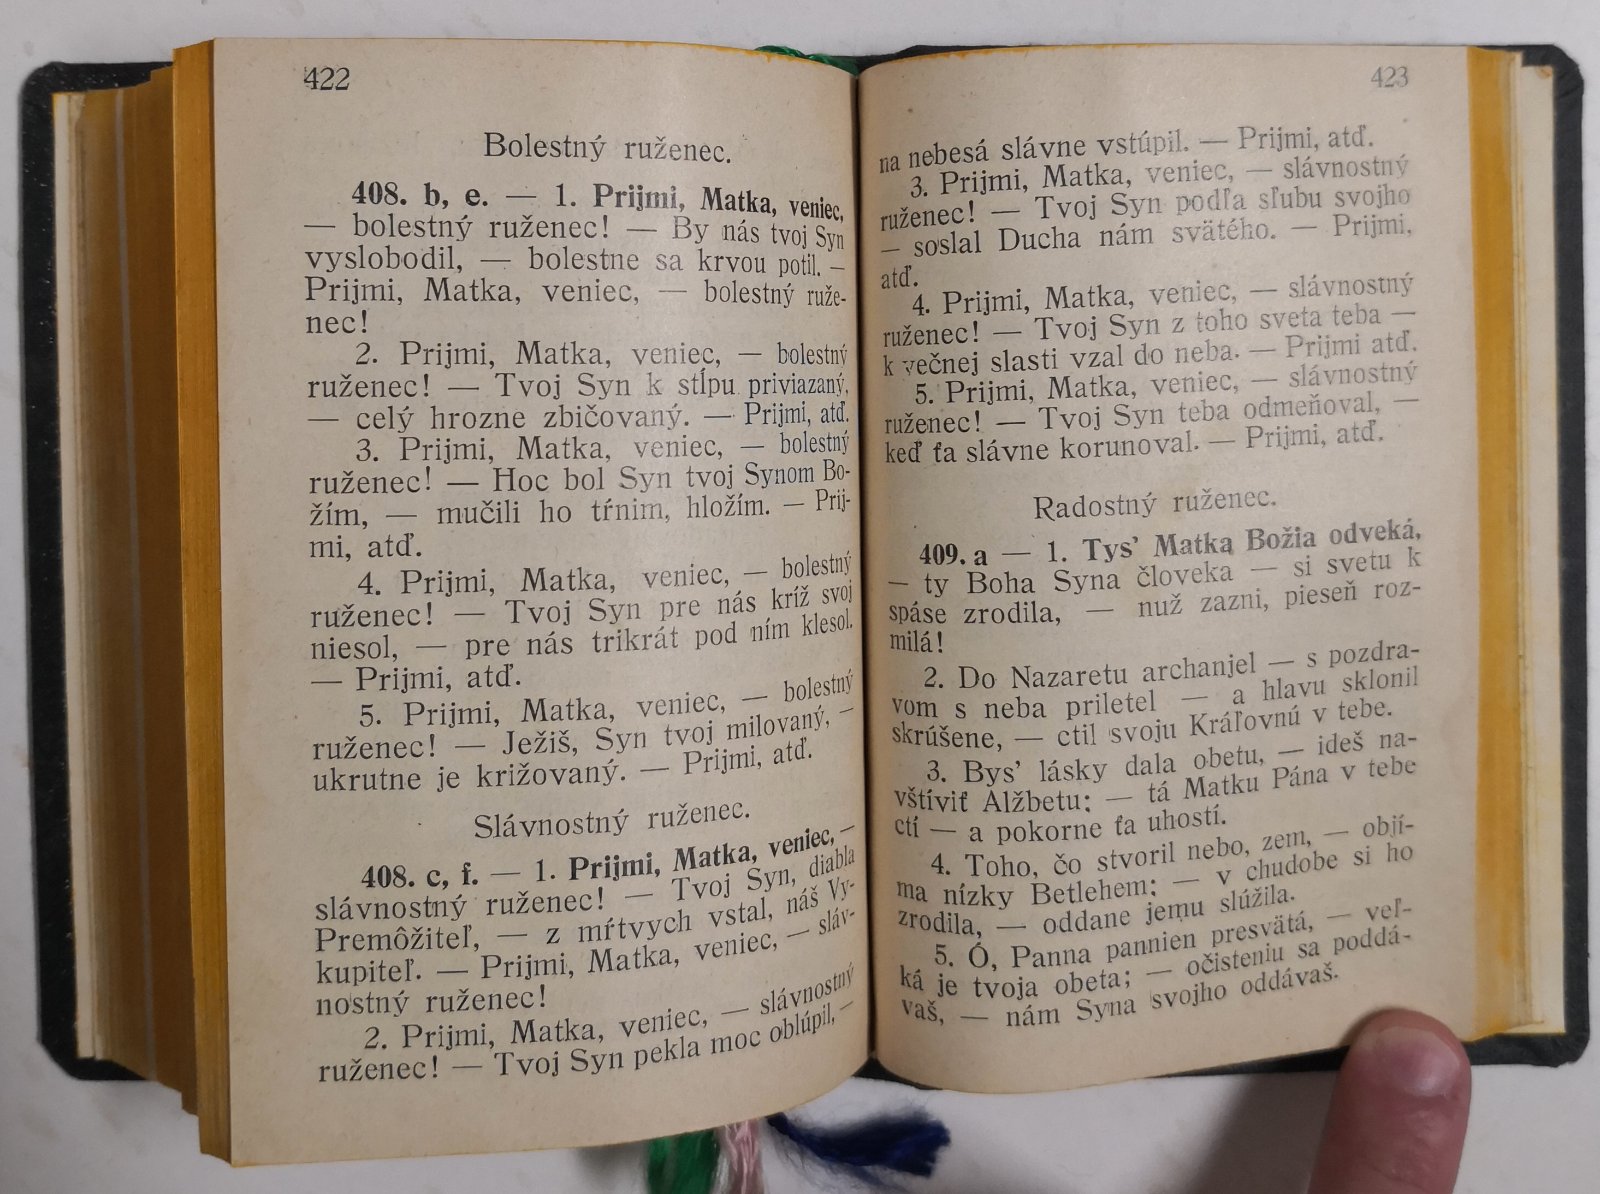 422
Bolestný ruženec.
408. b, e. — 1. Prijmi, Matka, veniec,
— bolestný ruženec! — By nás tvoj Syn
vyslobodil, — bolestne sa krvou potil. —
Prijmi, Matka, veniec, — bolestný ruže-
nec!
2. Prijmi, Matka, veniec, — bolestný
ruženec! — Tvoj Syn k stĺpu priviazaný,
— celý hrozne zbičovaný. — Prijmi, atď.
3. Prijmi, Matka, veniec, — bolestný
ruženec! — Hoc bol Syn tvoj Synom Bo-
žím, — mučili ho tŕnim, hložím. — Prij-
mi, atď.
4. Prijmi, Matka, veniec, — bolestný
ruženec! — Tvoj Syn pre nás kríž svoj
niesol, — pre nás trikrát pod ním klesol.
— Prijmi, atď.
5. Prijmi, Matka, veniec, — bolestný
ruženec! — Ježiš, Syn tvoj milovaný, —
ukrutne je križovaný. — Prijmi, atď.
Slávnostný ruženec.
408. c, f. — 1. Prijmi, Matka, veniec, —
slávnostný ruženec! — Tvoj Syn, diabla
Premôžiteľ, — z mŕtvych vstal, náš Vy-
kupiteľ. — Prijmi, Matka, veniec, — sláv-
nostný ruženec!
2. Prijmi, Matka, veniec, — slávnostný
ruženec! — Tvoj Syn pekla moc oblúpil, —
423
na nebesá slávne vstúpil. — Prijmi, atď.
3. Prijmi, Matka, veniec, — slávnostný
ruženec! — Tvoj Syn podľa sľubu svojho
— soslal Ducha nám svätého. — Prijmi,
atď.
4. Prijmi, Matka, veniec, — slávnostný
ruženec! — Tvoj Syn z toho sveta teba —
k večnej slasti vzal do neba. — Prijmi atď.
5. Prijmi, Matka, veniec, — slávnostný
ruženec! — Tvoj Syn teba odmeňoval, —
keď ťa slávne korunoval. — Prijmi, atď.
Radostný ruženec.
409. a — 1. Tys' Matka Božia odveká,
— ty Boha Syna človeka — si svetu k
spáse zrodila, — nuž zazni, pieseň roz-
milá!
2. Do Nazaretu archanjel — s pozdra-
vom s neba priletel — a hlavu sklonil
skrúšene, — ctil svoju Kráľovnú v tebe.
3. Bys' lásky dala obetu, — ideš na-
vštíviť Alžbetu; — tá Matku Pána v tebe
ctí — a pokorne ťa uhostí.
4. Toho, čo stvoril nebo, zem, — objí-
ma nízky Betlehem; — v chudobe si ho
zrodila, — oddane jemu slúžila.
5. Ó, Panna pannien presvätá, — veľ-
ká je tvoja obeta; — očisteniu sa poddá-
vaš, — nám Syna svojho oddávaš.